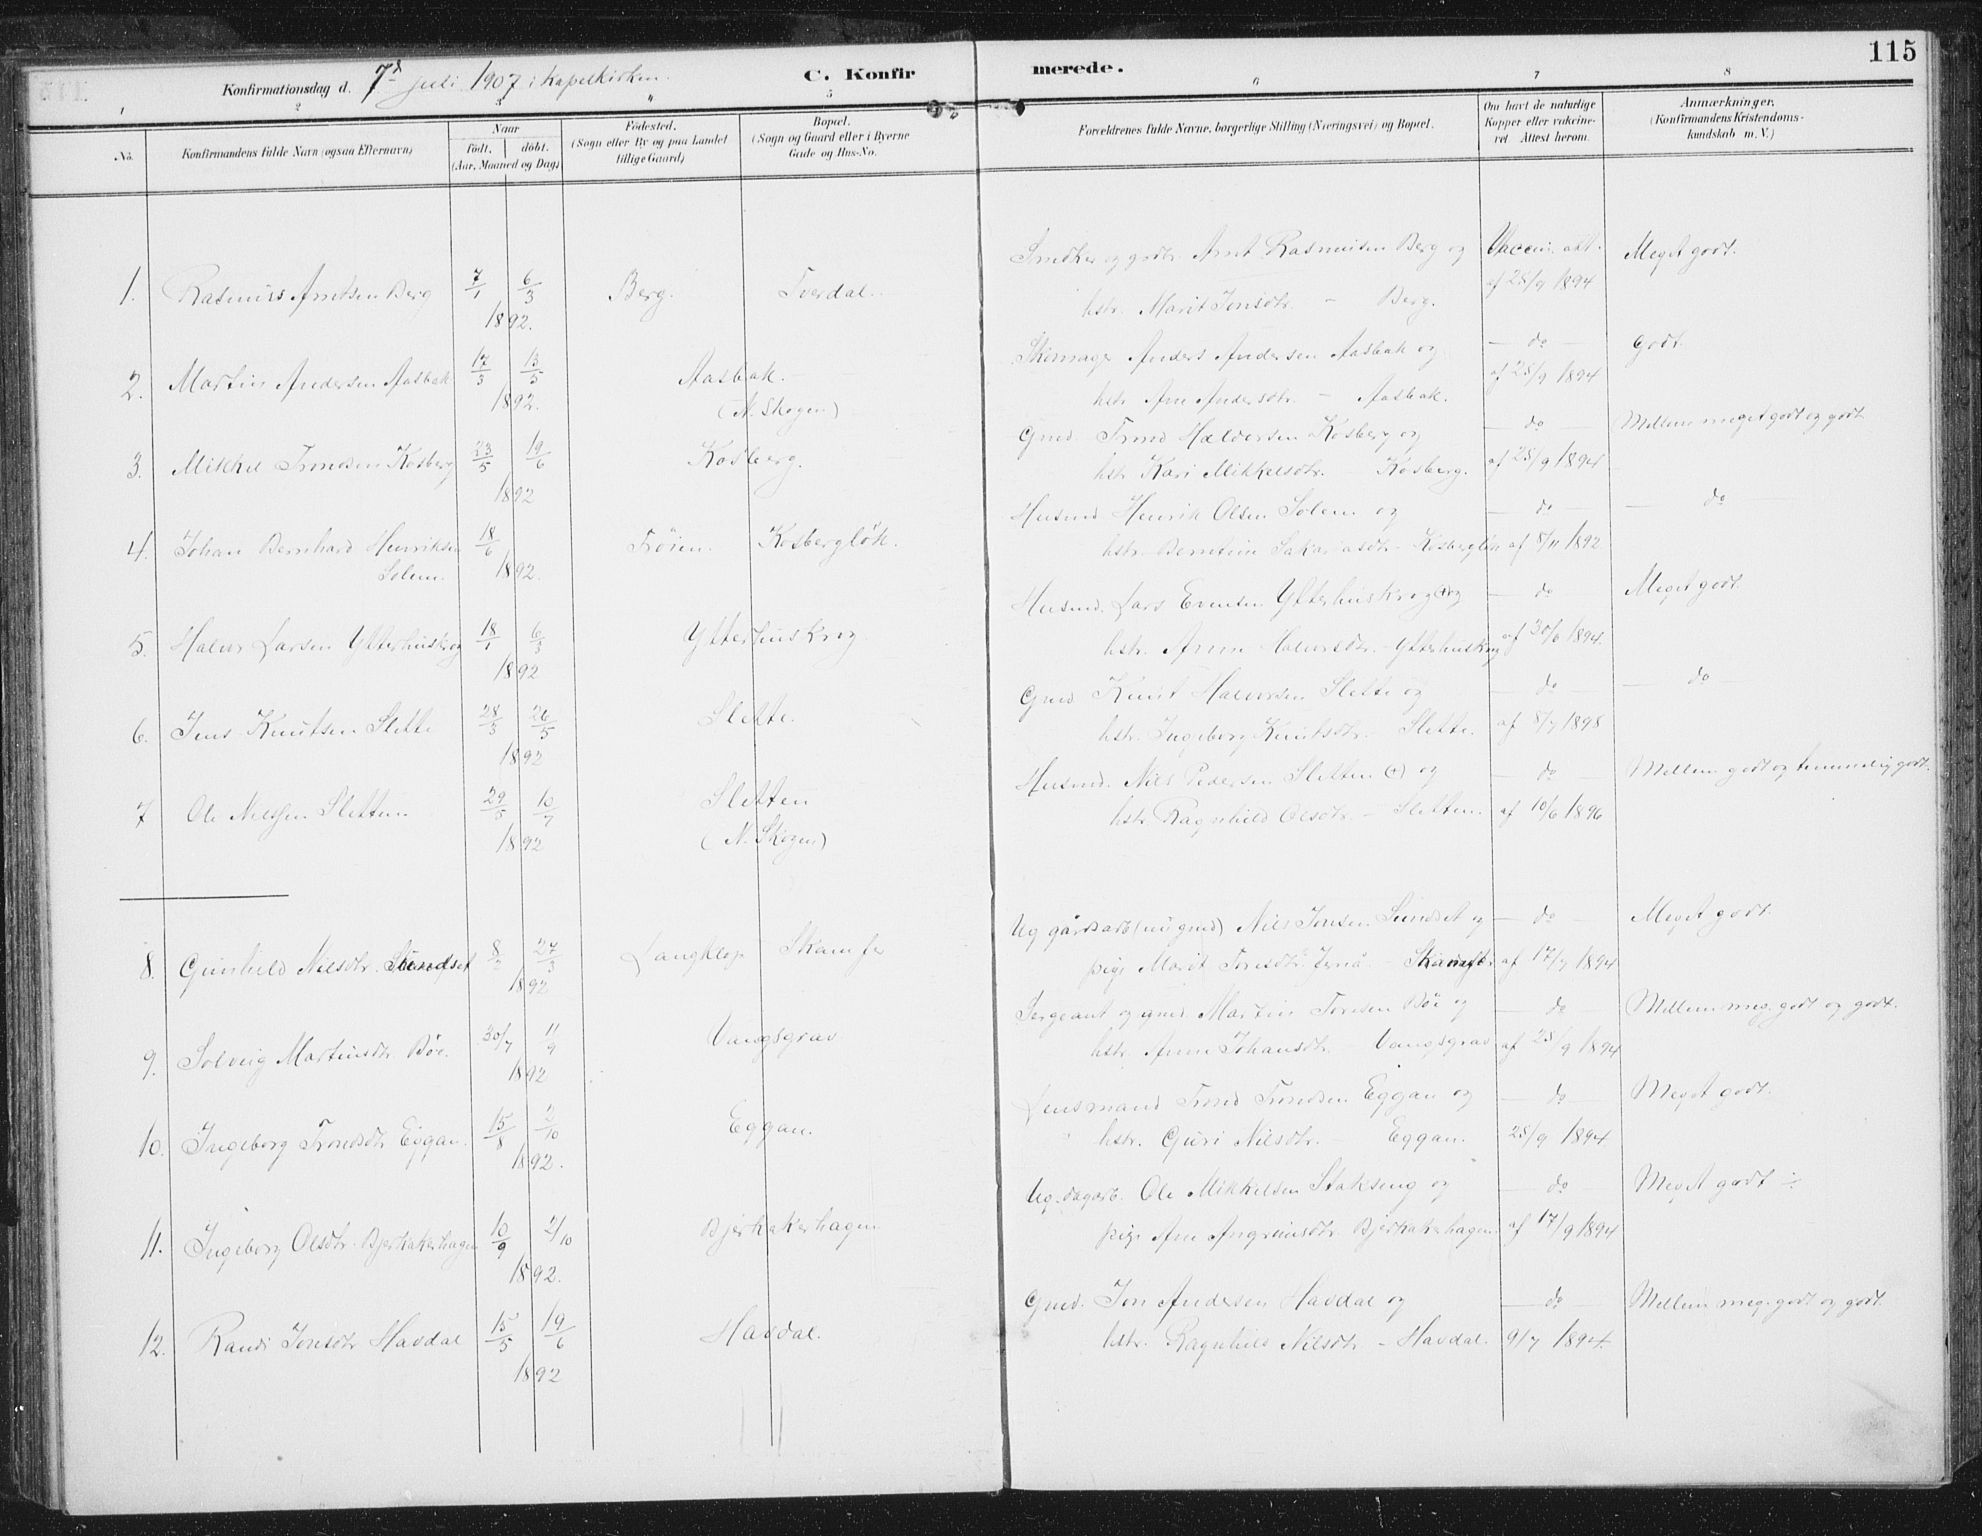 115
Konfirmationsdag d. 7d juli 1907 i Kapelkirken.
C. Konfirmerede.
1 2 3 4 5 6 7 8
No.
Konfirmandens fulde Navn (ogsaa Efternavn)
Naar
født. døbt.
(Aar, Maaned og Dag)
Fødested.
(Sogn eller By og paa Landet
tillige Gaard)
Bopæl.
(Sogn og Gaard eller i Byerne
Gade og Hus-No.
Forældrenes fulde Navne, borgerlige Stilling (Næringsvei) og Bopæl.
Om havt de naturlige
Kopper eller vakcine-
ret Attest herom.
Anmærkninger.
(Konfirmandens Kristendoms-
kundskab m. V.)
1. Rasmus Arntsen Berg 7/1 6/3 1892. Berg. Tverdal.
Snedker og gbr. Arnt Rasmusen Berg og
hstr. Marit Jonsdtr. - Berg.
Vaccin. att. af 25/9 1894
Meget godt.
2. Martin Andersen Aasbak 17/3 13/5 1892. Aasbak.
(N. Skogen)
Skomager Anders Andersen Aasbak og
hstr. Ane Andersdtr. - Aasbak.
do af 25/9 1894
Godt.
3. Mikkel Trondsen Kosberg 23/5 19/6 1892 Kosberg.
Gmd. Trond Halvorsen Kosberg og
hstr. Kari Mikkelsdtr. - Kosberg.
do af 25/9 1894
Mellem meget godt og godt
4. Johan Bernhard Henriksen
Solem. 18/6 1892. Trøien. Kosbergløk.
Husmd. Henrik Olsen Solem og
hstr. Berntine Sakariasdtr - Kosbergløk
do af 5/11 1892
do
5. Halvor Larsen Ytterhuskrog 18/1 6/3 1892 Ytterhuskrog
Husmd. Lars Evensen Ytterhuskrog (+) og
hstr. Anne Halvorsdtr. - Ytterhuskrog
do af 30/6 1894.
Meget godt.
6. Jens Knutsen Slette 28/3 26/5 1892 Slette.
Gmd. Knut Halvorsen Slette og
hstr. Ingeborg Knutsdtr. - Slette.
do af 8/7 1898
do
7 Ole Nilssen Sletten 29/5 10/7 1892 Sletten
(N. Skogen)
Husmd. Nils Pedersen Sletten (+) og
hstr. Ragnhild Olsdtr. - Sletten.
do af 10/6 1896
Mellem godt og temmelig godt.
8. Gunhild Nilsdtr. Sundset 8/2 27/3 1892 Langklop Skamfer
Ug gårdsarb (nu gmd) Nils Jonsen Sundset og
pige Marit
do af 17/7 1894
Meget godt.
9. Solveig Martinsdtr Bøe. 30/7 11/9 1892 Vangsgrav
Sergeant og gmd. Martin Tomsen Bøe og
hstr. Anne Johansdtr. - Vangsgrav
do af 25/9 1894
Mellem meg. godt og godt.
10. Ingeborg Trondsdtr Eggan. 15/8 2/10 1892. Eggan.
Lensmand Trond Trondsen Eggan og
hstr. Guri Nilsdtr. - Eggan.
do 25/9 1894.
Meget godt.
11. Ingeborg Olsdtr. Bjerkakerhagen 10/9 2/10 1892. Bjerkakerhagen
Ug. dagarb. Ole Mikkelsen Stakseng og
pige Ane Angrimsdtr. Bjerkakerhagen
do af 17/9 1894
Meget godt ÷
12. Randi Jonsdtr Havdal 15/5 19/6 1892 Havdal.
Gmd. Jon Andersen Havdal og
hstr. Ragnhild Nilsdtr - Havdal.
do 9/7 1894.
Mellem meg. godt og godt.